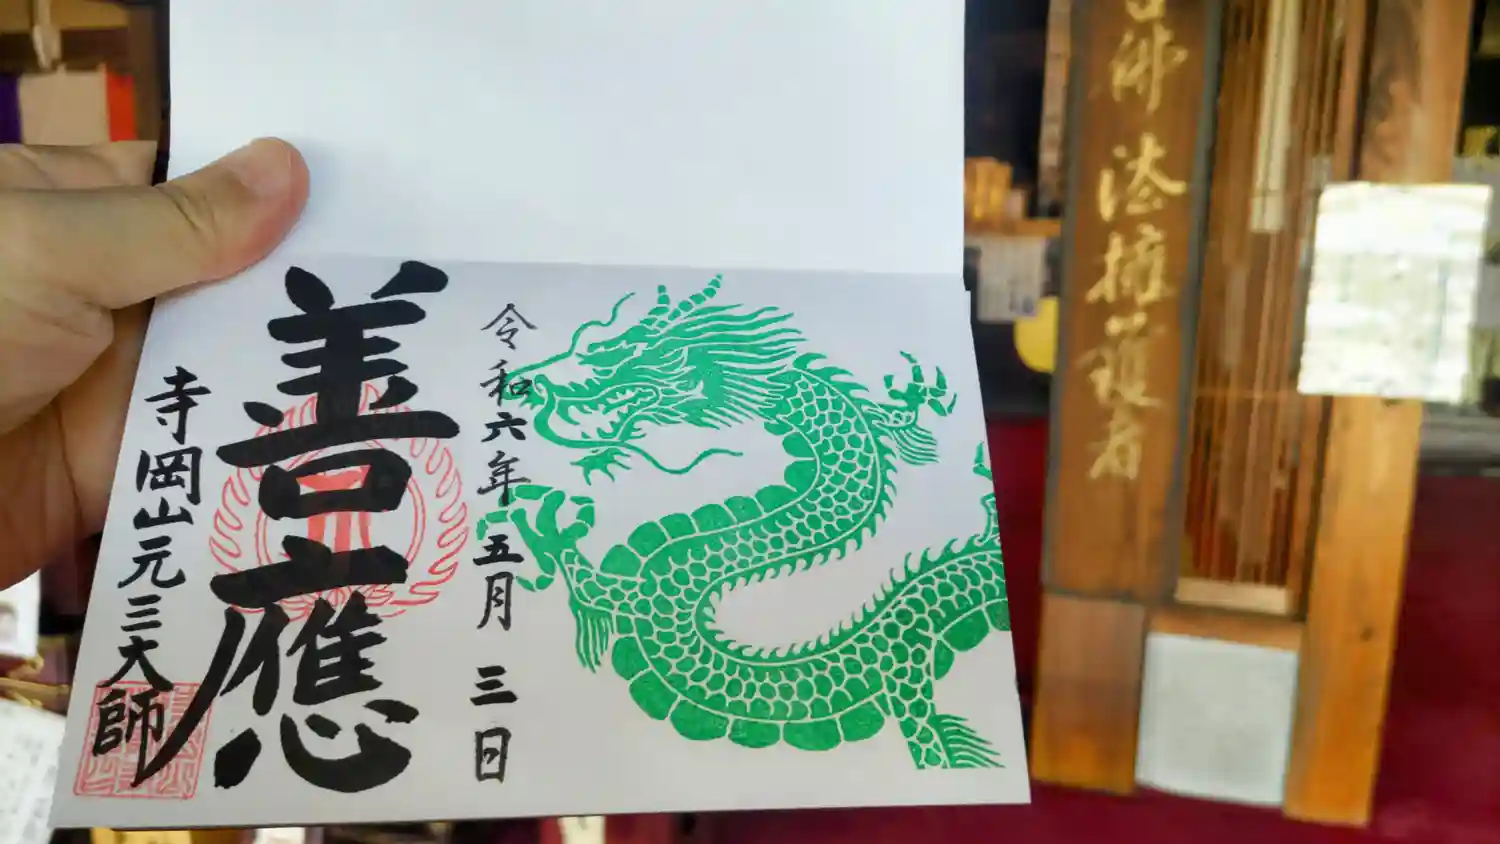 令和六年五月三日
善應
寺岡山元三大師
佛法擁護者